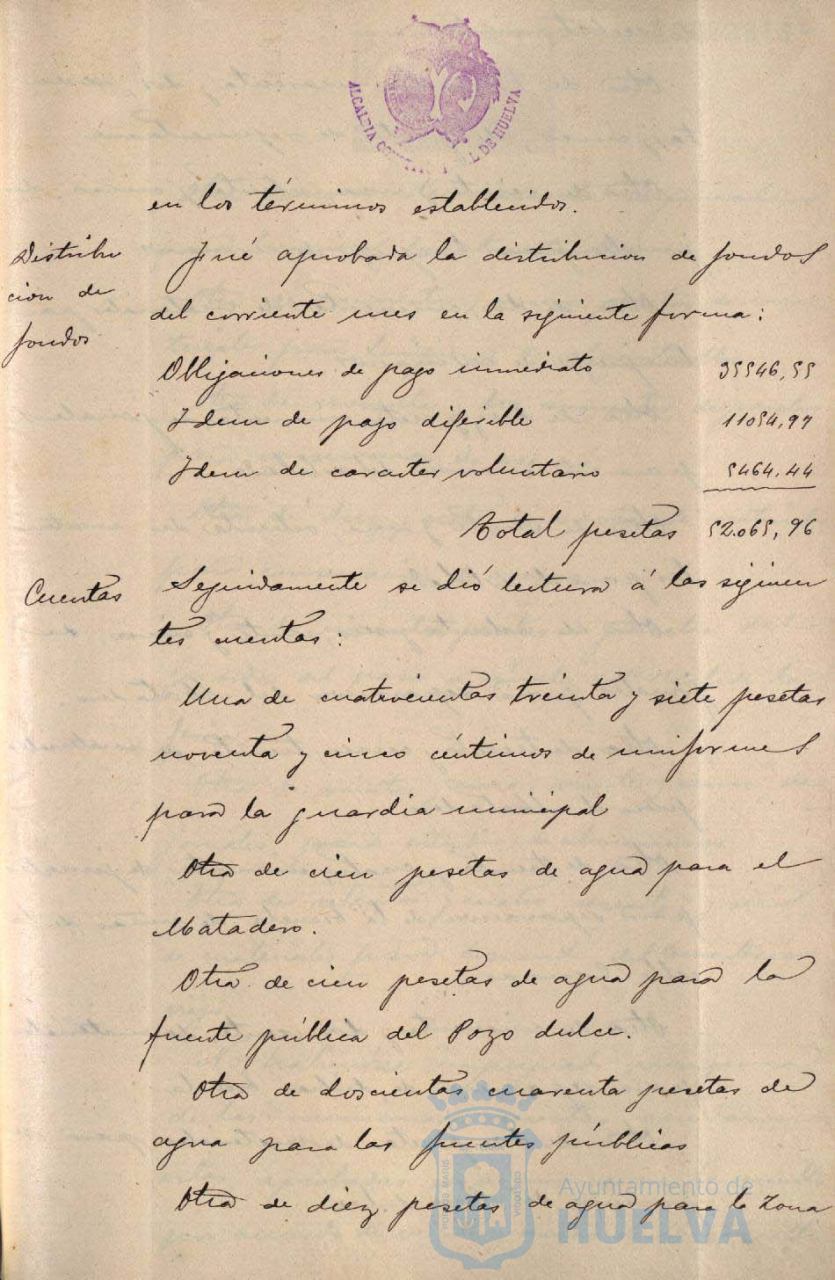 ALCALDIA DE HUELVA
en los términos establecidos.
Distribu
cion de
fondos
Fué aprobada la distribucion de fondos
del corriente mes en la siguiente forma:
Obligaciones de pago inmediato 35546,55
Idem de pago diferible 11054,97
Idem de caracter voluntario 5464,44
Total pesetas 52.065,96
Cuentas
Seguidamente se dió lectura á las siguien
tes cuentas:
Una de cuatrocientas treinta y siete pesetas
noventa y cinco céntimos de uniformes
para la guardia municipal
Otra de cien pesetas de agua para el
Matadero.
Otra de cien pesetas de agua para la
fuente pública del Pozo dulce.
Otra de doscientas cuarenta pesetas de
agua para las fuentes públicas
Otra de diez pesetas de agua para la zona
Ayuntamiento de
HUELVA